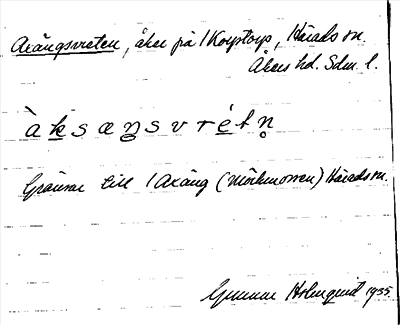 Axängsvreten, åker på 1 Korptorp, Härads sn.
Åkers hd. Sdm. l.
àksæŋsvrétn̥
Gränsar till 1 Axäng (Mörkmossen) Härads sn.
Gunnar Holmquist 1935.